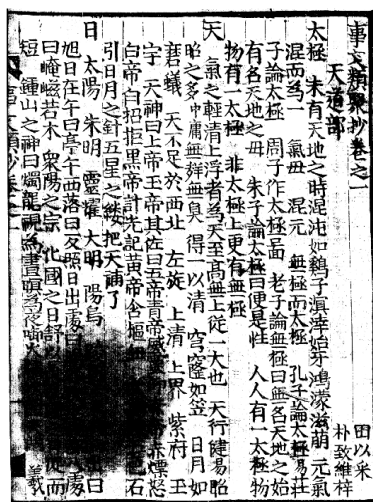 事文類聚抄卷之一
天道部 田以采
朴致維梓
太極 未有天地之時混沌如鷄子溟涬始芽鴻濛滋萌 元氣
混而爲一 氣毋 混元 無極而太極 孔子論太極易 莊
子論太極 周子作太極啚 老子論無極曰無名天地之始
有名天地之毋 朱子論太極曰便是性 人人有一太極物
物有一太極 非太極上更有無極
天 氣之輕清上浮者爲天至高無上從一大也 天行健易昭
昭之多中庸無聲無臭 得一以清 穹窿如笠 日月如
磨蟻 天不足於西北 左旋 上清 上界 紫府 玉
宇 天神曰上帝玉帝其佐曰五帝青帝 赤熛怒
白帝白招拒黑帝計先記黃帝含樞 石
引日月之針五星之縷把天補了
日 太陽 朱明 靈曜 大明 陽烏 出曰
旭日在午曰亭午西落曰反照日出處曰 處
曰崦嵫若木 衆陽之宗 化國之日舒 而
短 鍾山之神曰燭龍視爲晝瞑爲夜 羲